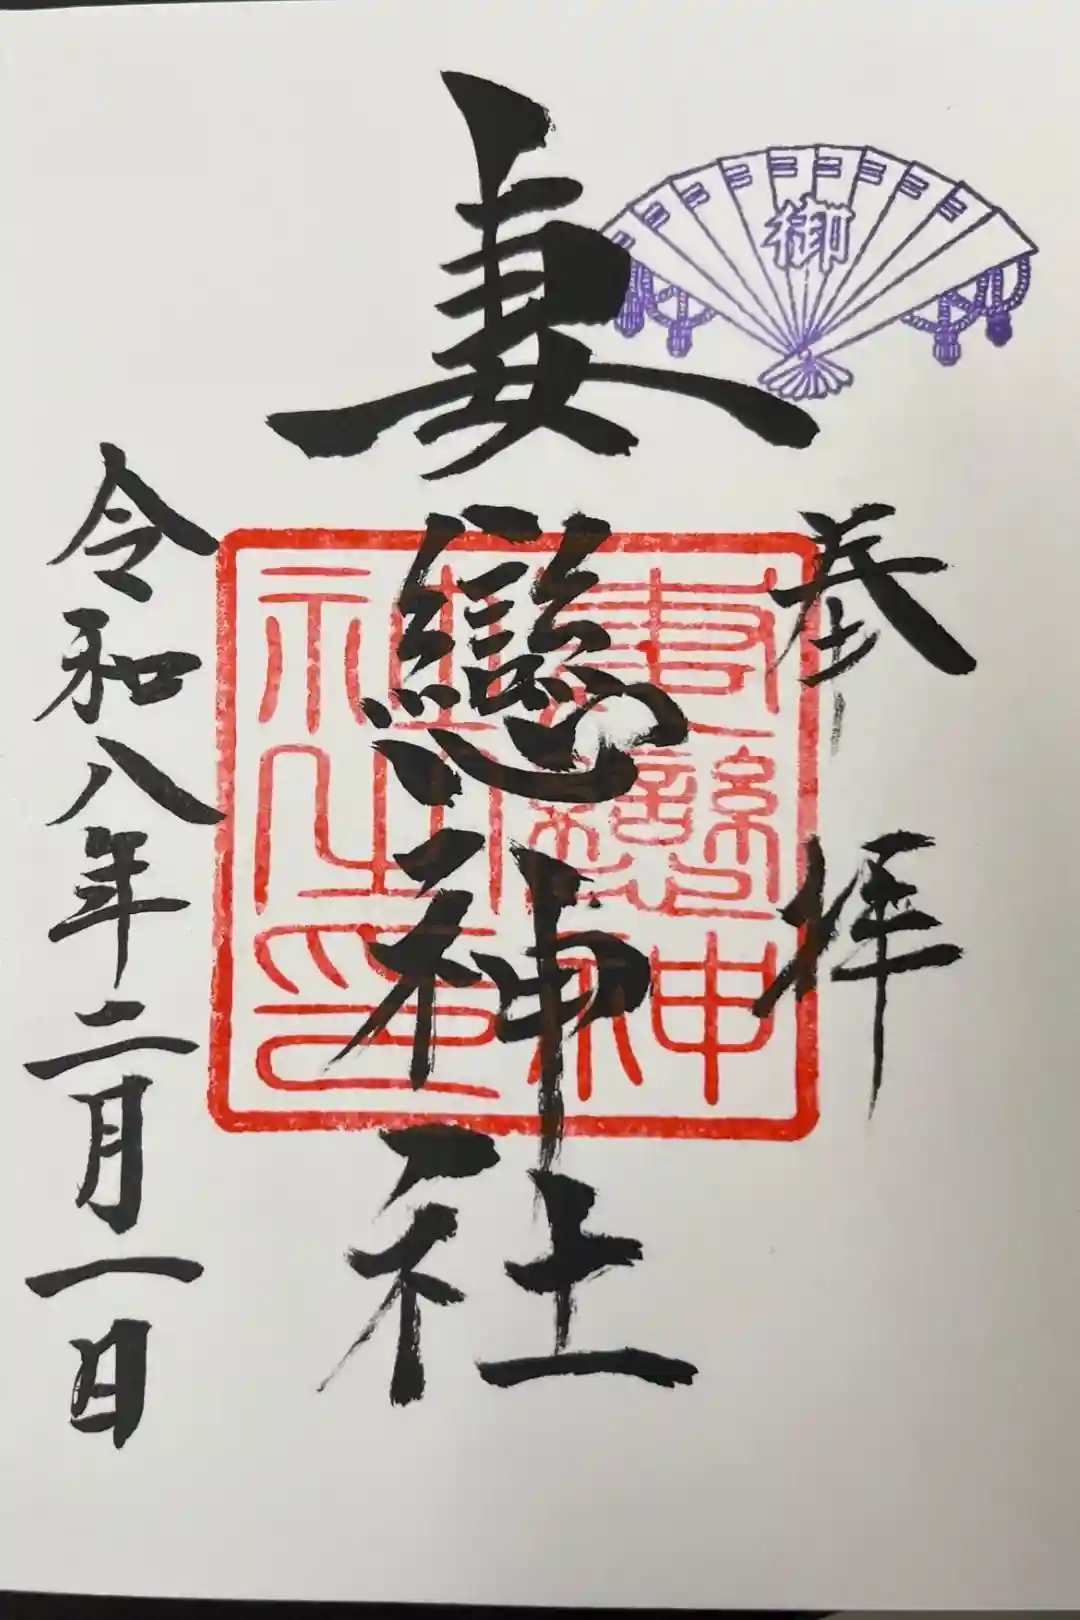 御
奉拝
妻戀神社
妻戀神
社之印
令和八年二月一日